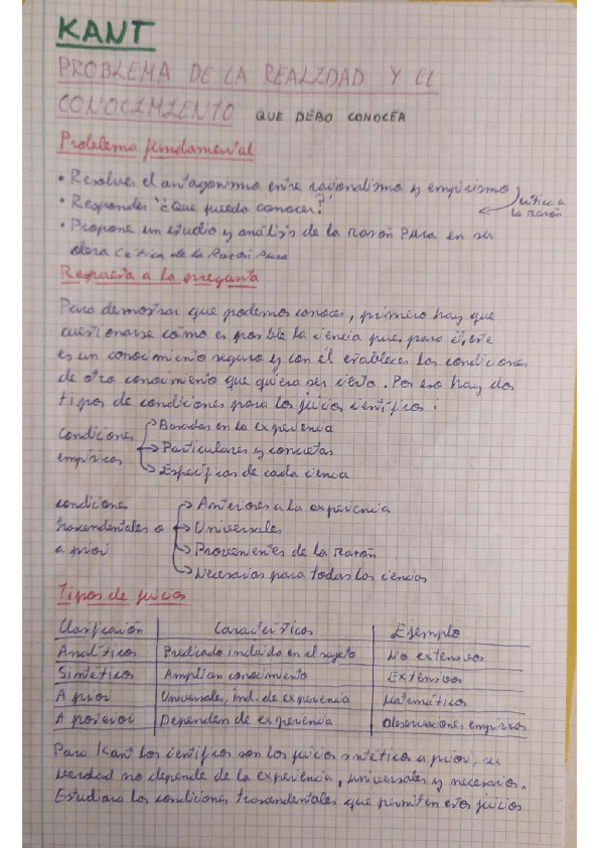 KANT
PROBLEMA DE LA REALIDAD Y EL
CONOCIMIENTO QUE DEBO CONOCER
Problema fundamental
• Resolver el antagonismo entre racionalismo y empirismo
• Responder "¿Que puedo conocer?" critica a la razón
• Propone un estudio y análisis de la Razón Pura en su
obra Critica de la Razón Pura
Respuesta a la pregunta
Para demostrar que podemos conocer, primero hay que
cuestionarse cómo es posible la ciencia pues para él, este
es un conocimiento seguro y con él establecer las condiciones
de otro conocimiento que quiera ser cierto. Por eso hay dos
tipos de condiciones para los juicios científicos:
Condiciones empíricas
→ Basadas en la experiencia
→ Particulares y concretas
→ Específicas de cada ciencia
condiciones trascendentales o a priori
→ Anteriores a la experiencia
→ Universales
→ Provenientes de la Razón
→ Necesarias para todas las ciencias
Tipos de juicios
Clasificación Características Ejemplo
Analíticos Predicado incluido en el sujeto No extensivos
Sintéticos Amplian conocimiento Extensivos
A priori Universales, ind. de experiencia Matemáticas
A posteriori Dependen de experiencia Observaciones empíricas
Para Kant los científicos son los juicios sintéticos a priori, su
verdad no depende de la experiencia, universales y necesarios.
Estudiara las condiciones trascendentales que permiten estos juicios